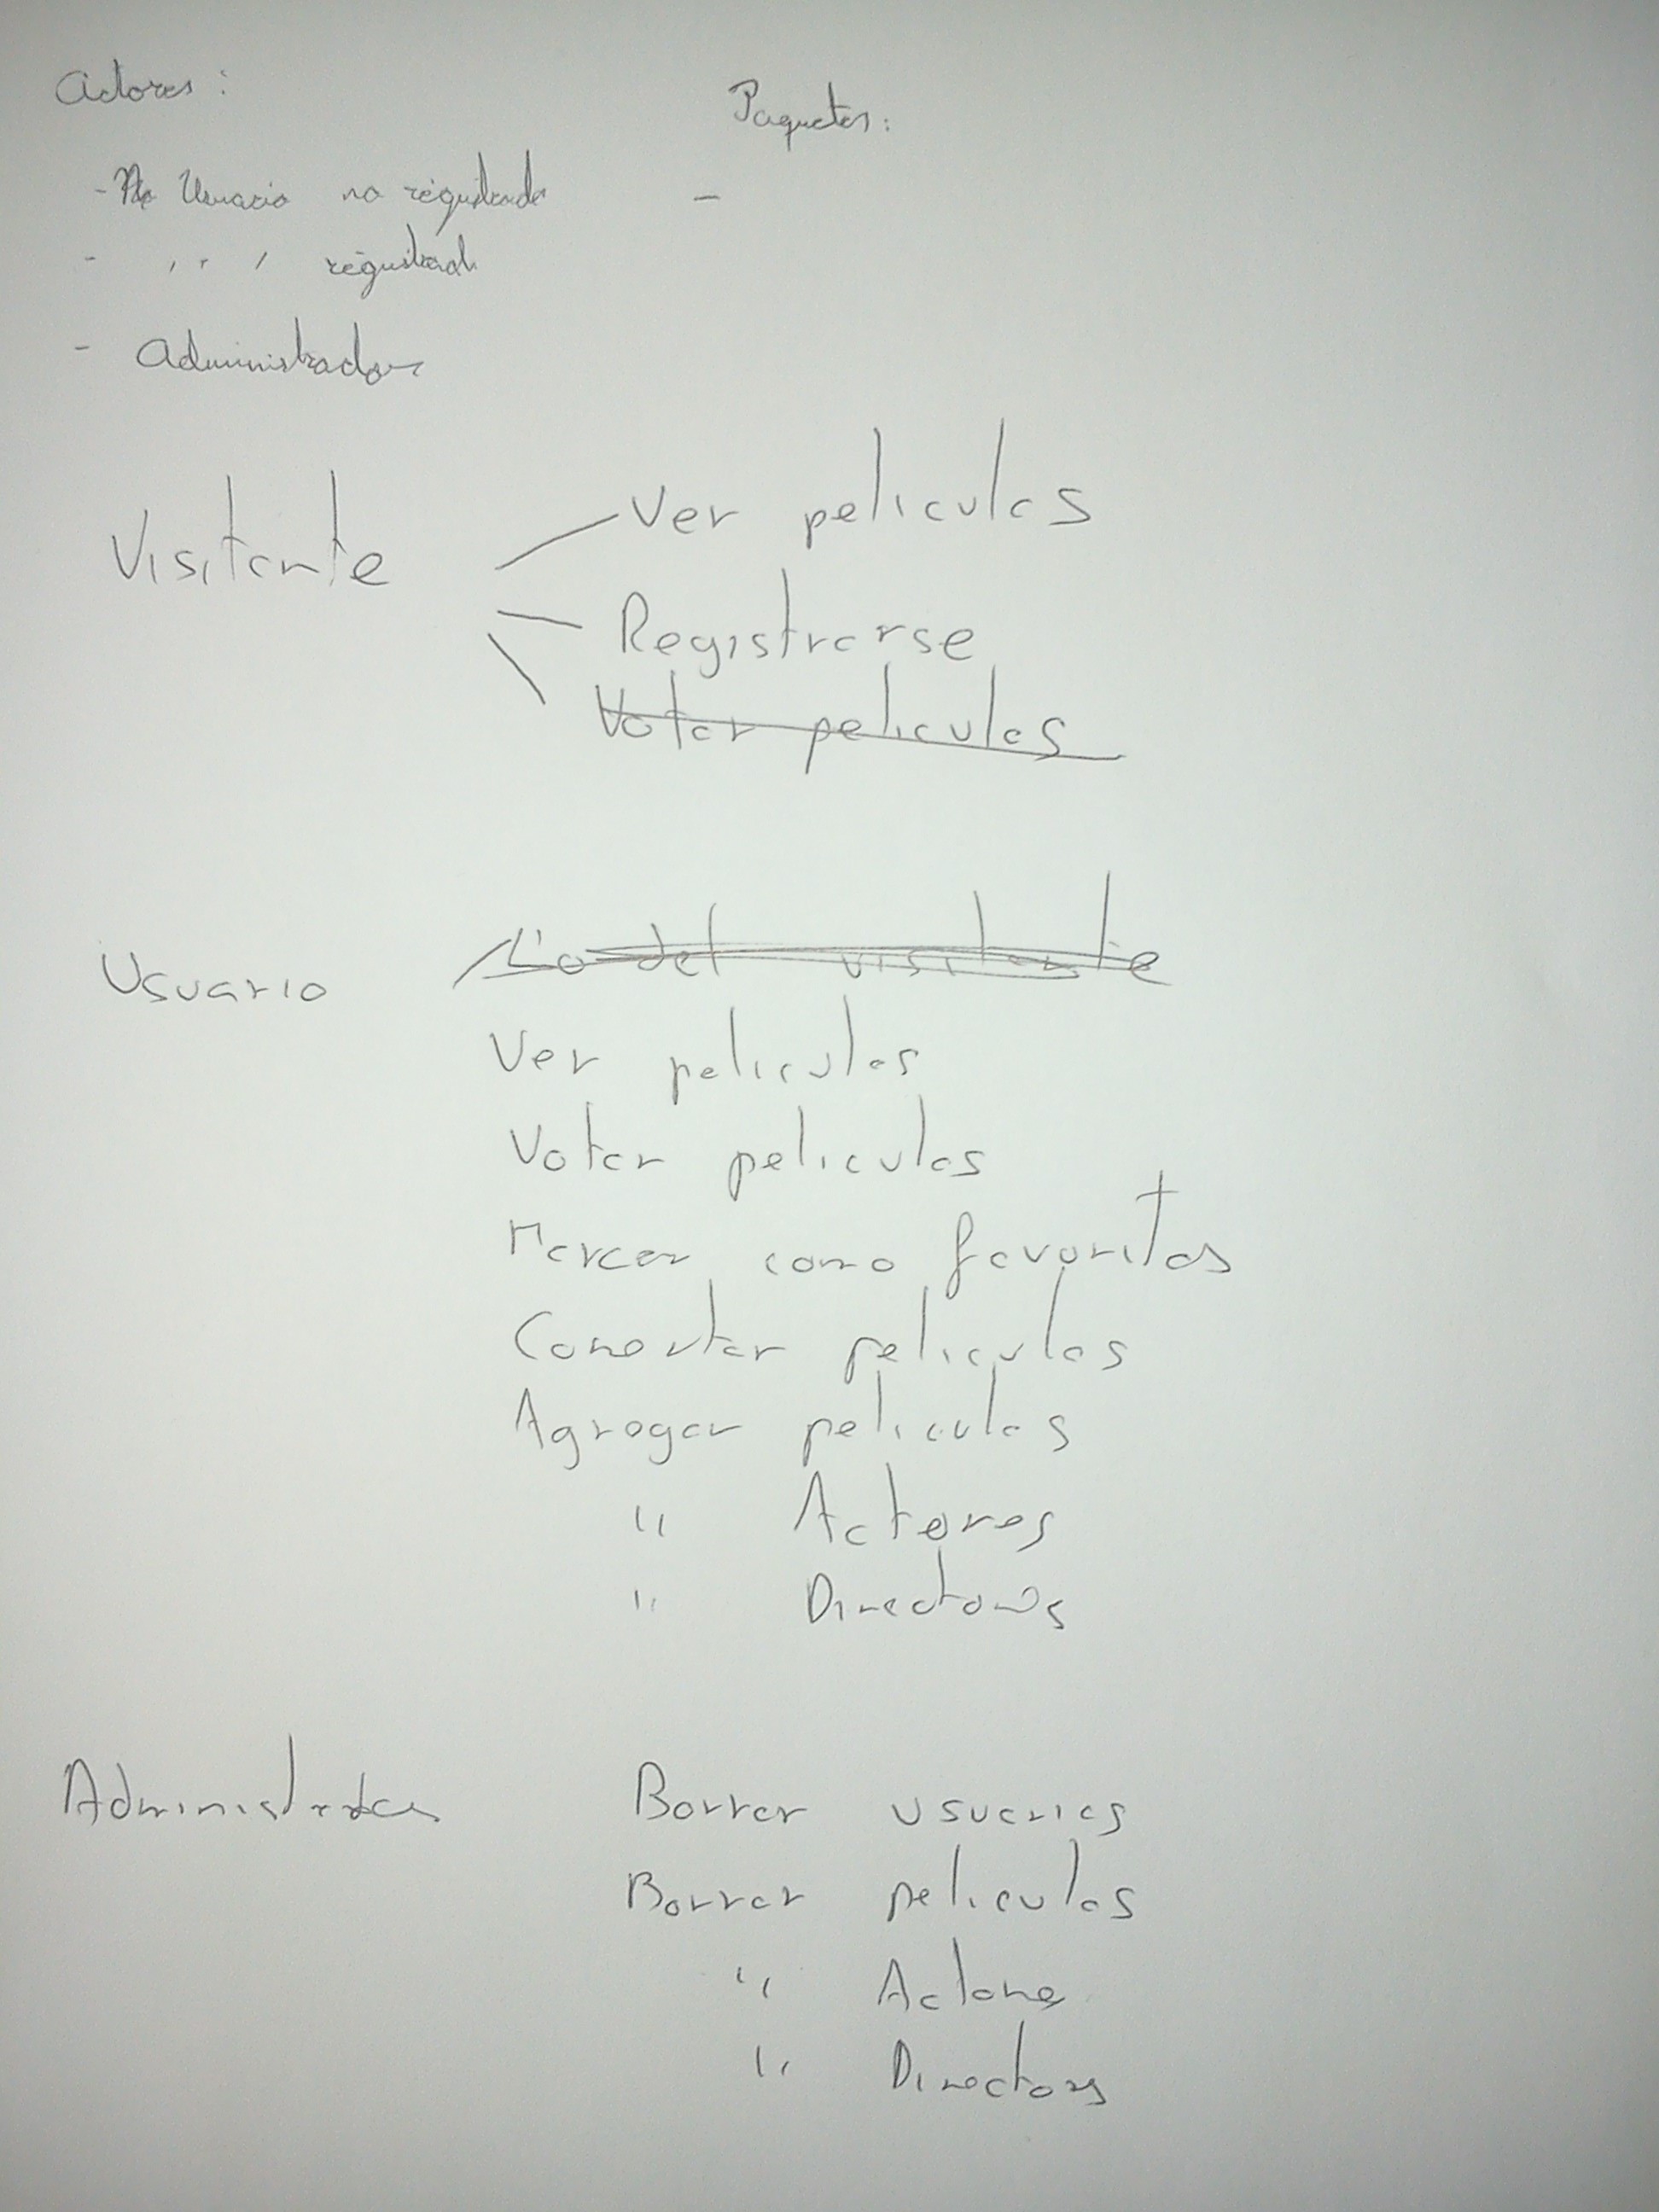 Actores:
Paquetes:
- Usuario no registrado
-
- " " " registrado
- Administrador
Visitante
Ver peliculas
Registrarse
Votar peliculas
Usuario
Lo del visitante
Ver peliculas
Votar peliculas
Marcar como favoritas
Comentar peliculas
Agregar peliculas
" Actores
" Directores
Administrador
Borrar usuarios
Borrar peliculas
" Actores
" Directores